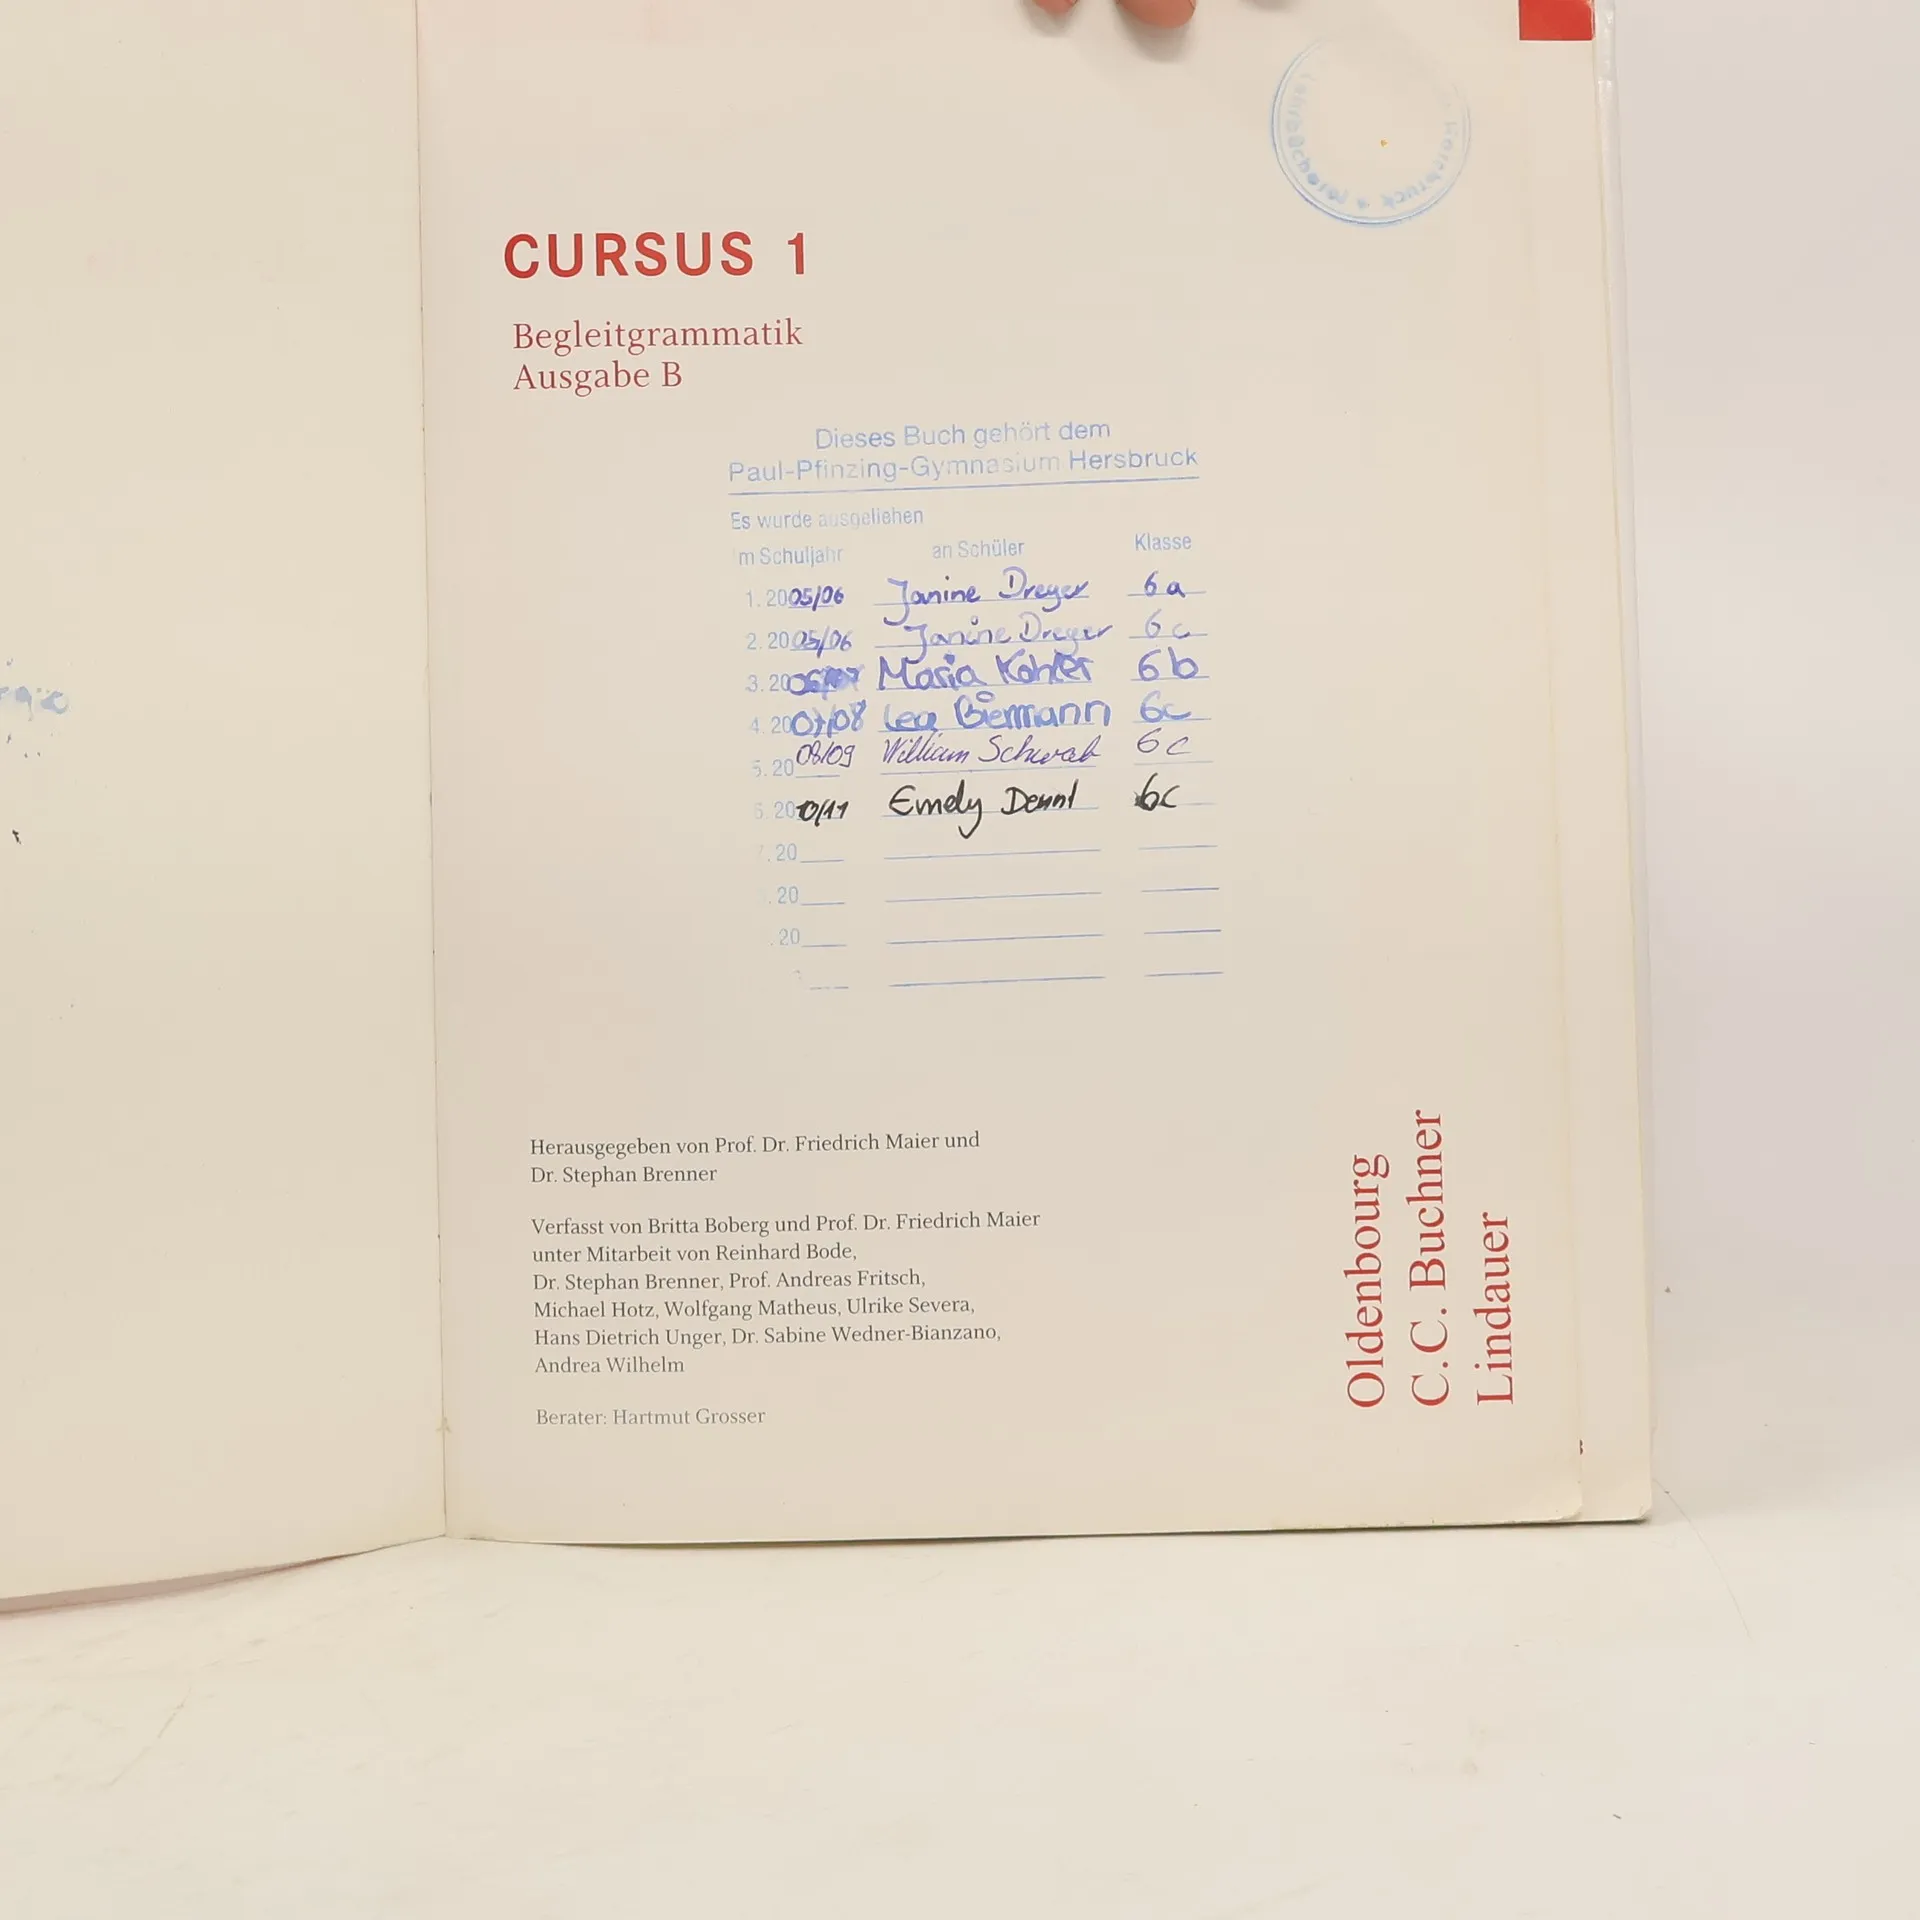 CURSUS 1
Begleitgrammatik
Ausgabe B
Dieses Buch gehört dem
Paul-Pfinzing-Gymnasium Hersbruck
Es wurde ausgeliehen
m Schuljahr an Schüler Klasse
1. 2005/06 Janine Dreyer 6a
2. 2005/06 Janine Dreyer 6c
3. 2006/07 Maria Kohler 6b
4. 2007/08 Lea Biermann 6c
5. 2008/09 William Schwab 6c
6. 2010/11 Emely 6c
7. 20
. 20
. 20
Herausgegeben von Prof. Dr. Friedrich Maier und
Dr. Stephan Brenner
Verfasst von Britta Boberg und Prof. Dr. Friedrich Maier
unter Mitarbeit von Reinhard Bode,
Dr. Stephan Brenner, Prof. Andreas Fritsch,
Michael Hotz, Wolfgang Matheus, Ulrike Severa,
Hans Dietrich Unger, Dr. Sabine Wedner-Bianzano,
Andrea Wilhelm
Berater: Hartmut Grosser
Oldenbourg
C.C. Buchner
Lindauer